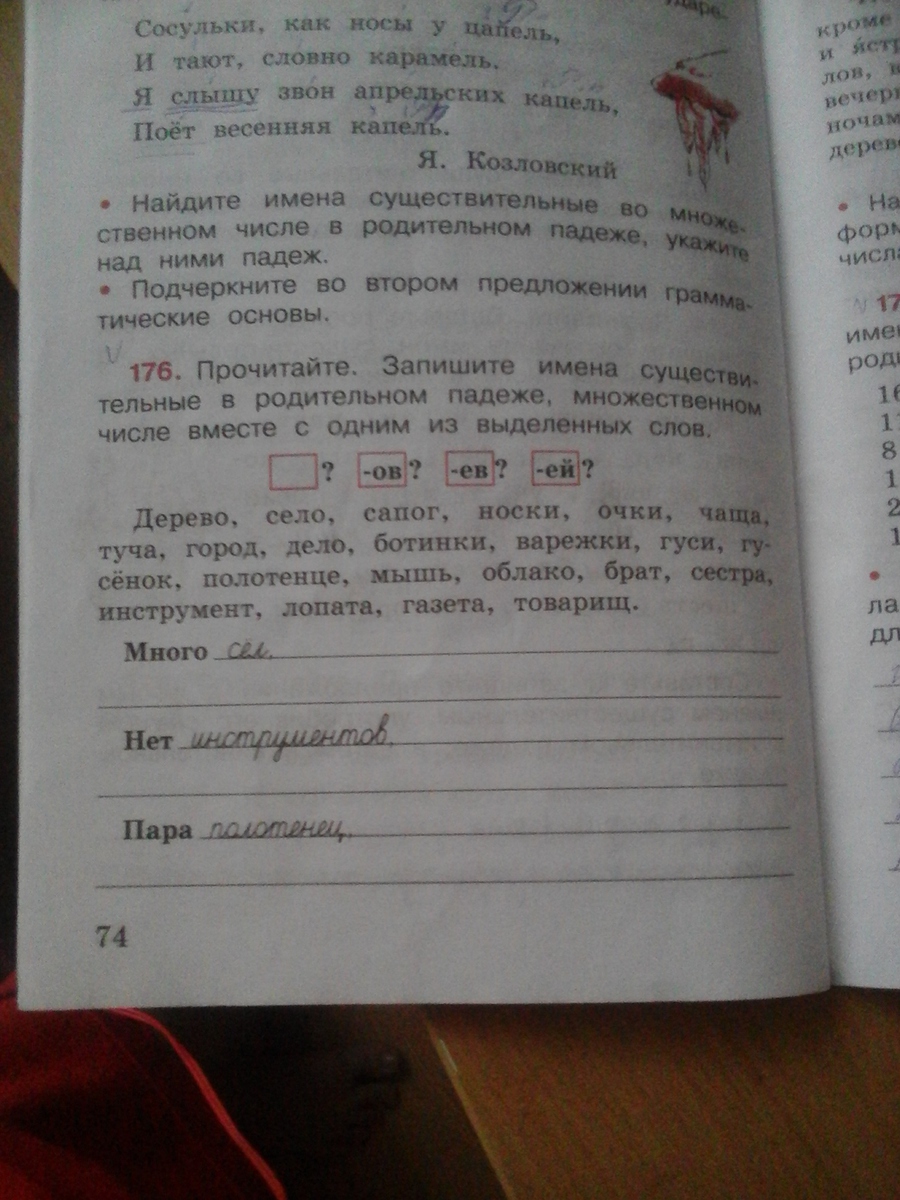 Сосульки, как носы у цапель,
И тают, словно карамель.
Я слышу звон апрельских капель,
Поёт весенняя капель.
Я. Козловский
• Найдите имена существительные во множе-
ственном числе в родительном падеже, укажите
над ними падеж.
• Подчеркните во втором предложении грамма-
тические основы.
176. Прочитайте. Запишите имена существи-
тельные в родительном падеже, множественном
числе вместе с одним из выделенных слов.
? -ов? -ев? -ей?
Дерево, село, сапог, носки, очки, чаща,
туча, город, дело, ботинки, варежки, гуси, гу-
сёнок, полотенце, мышь, облако, брат, сестра,
инструмент, лопата, газета, товарищ.
Много сёл,
Нет инструментов,
Пара полотенец,
74
кроме
и ястр
лов, в
вечер
ночам
дерев
• На
форм
числа
17
имен
роди
16
8
•
ла
дл